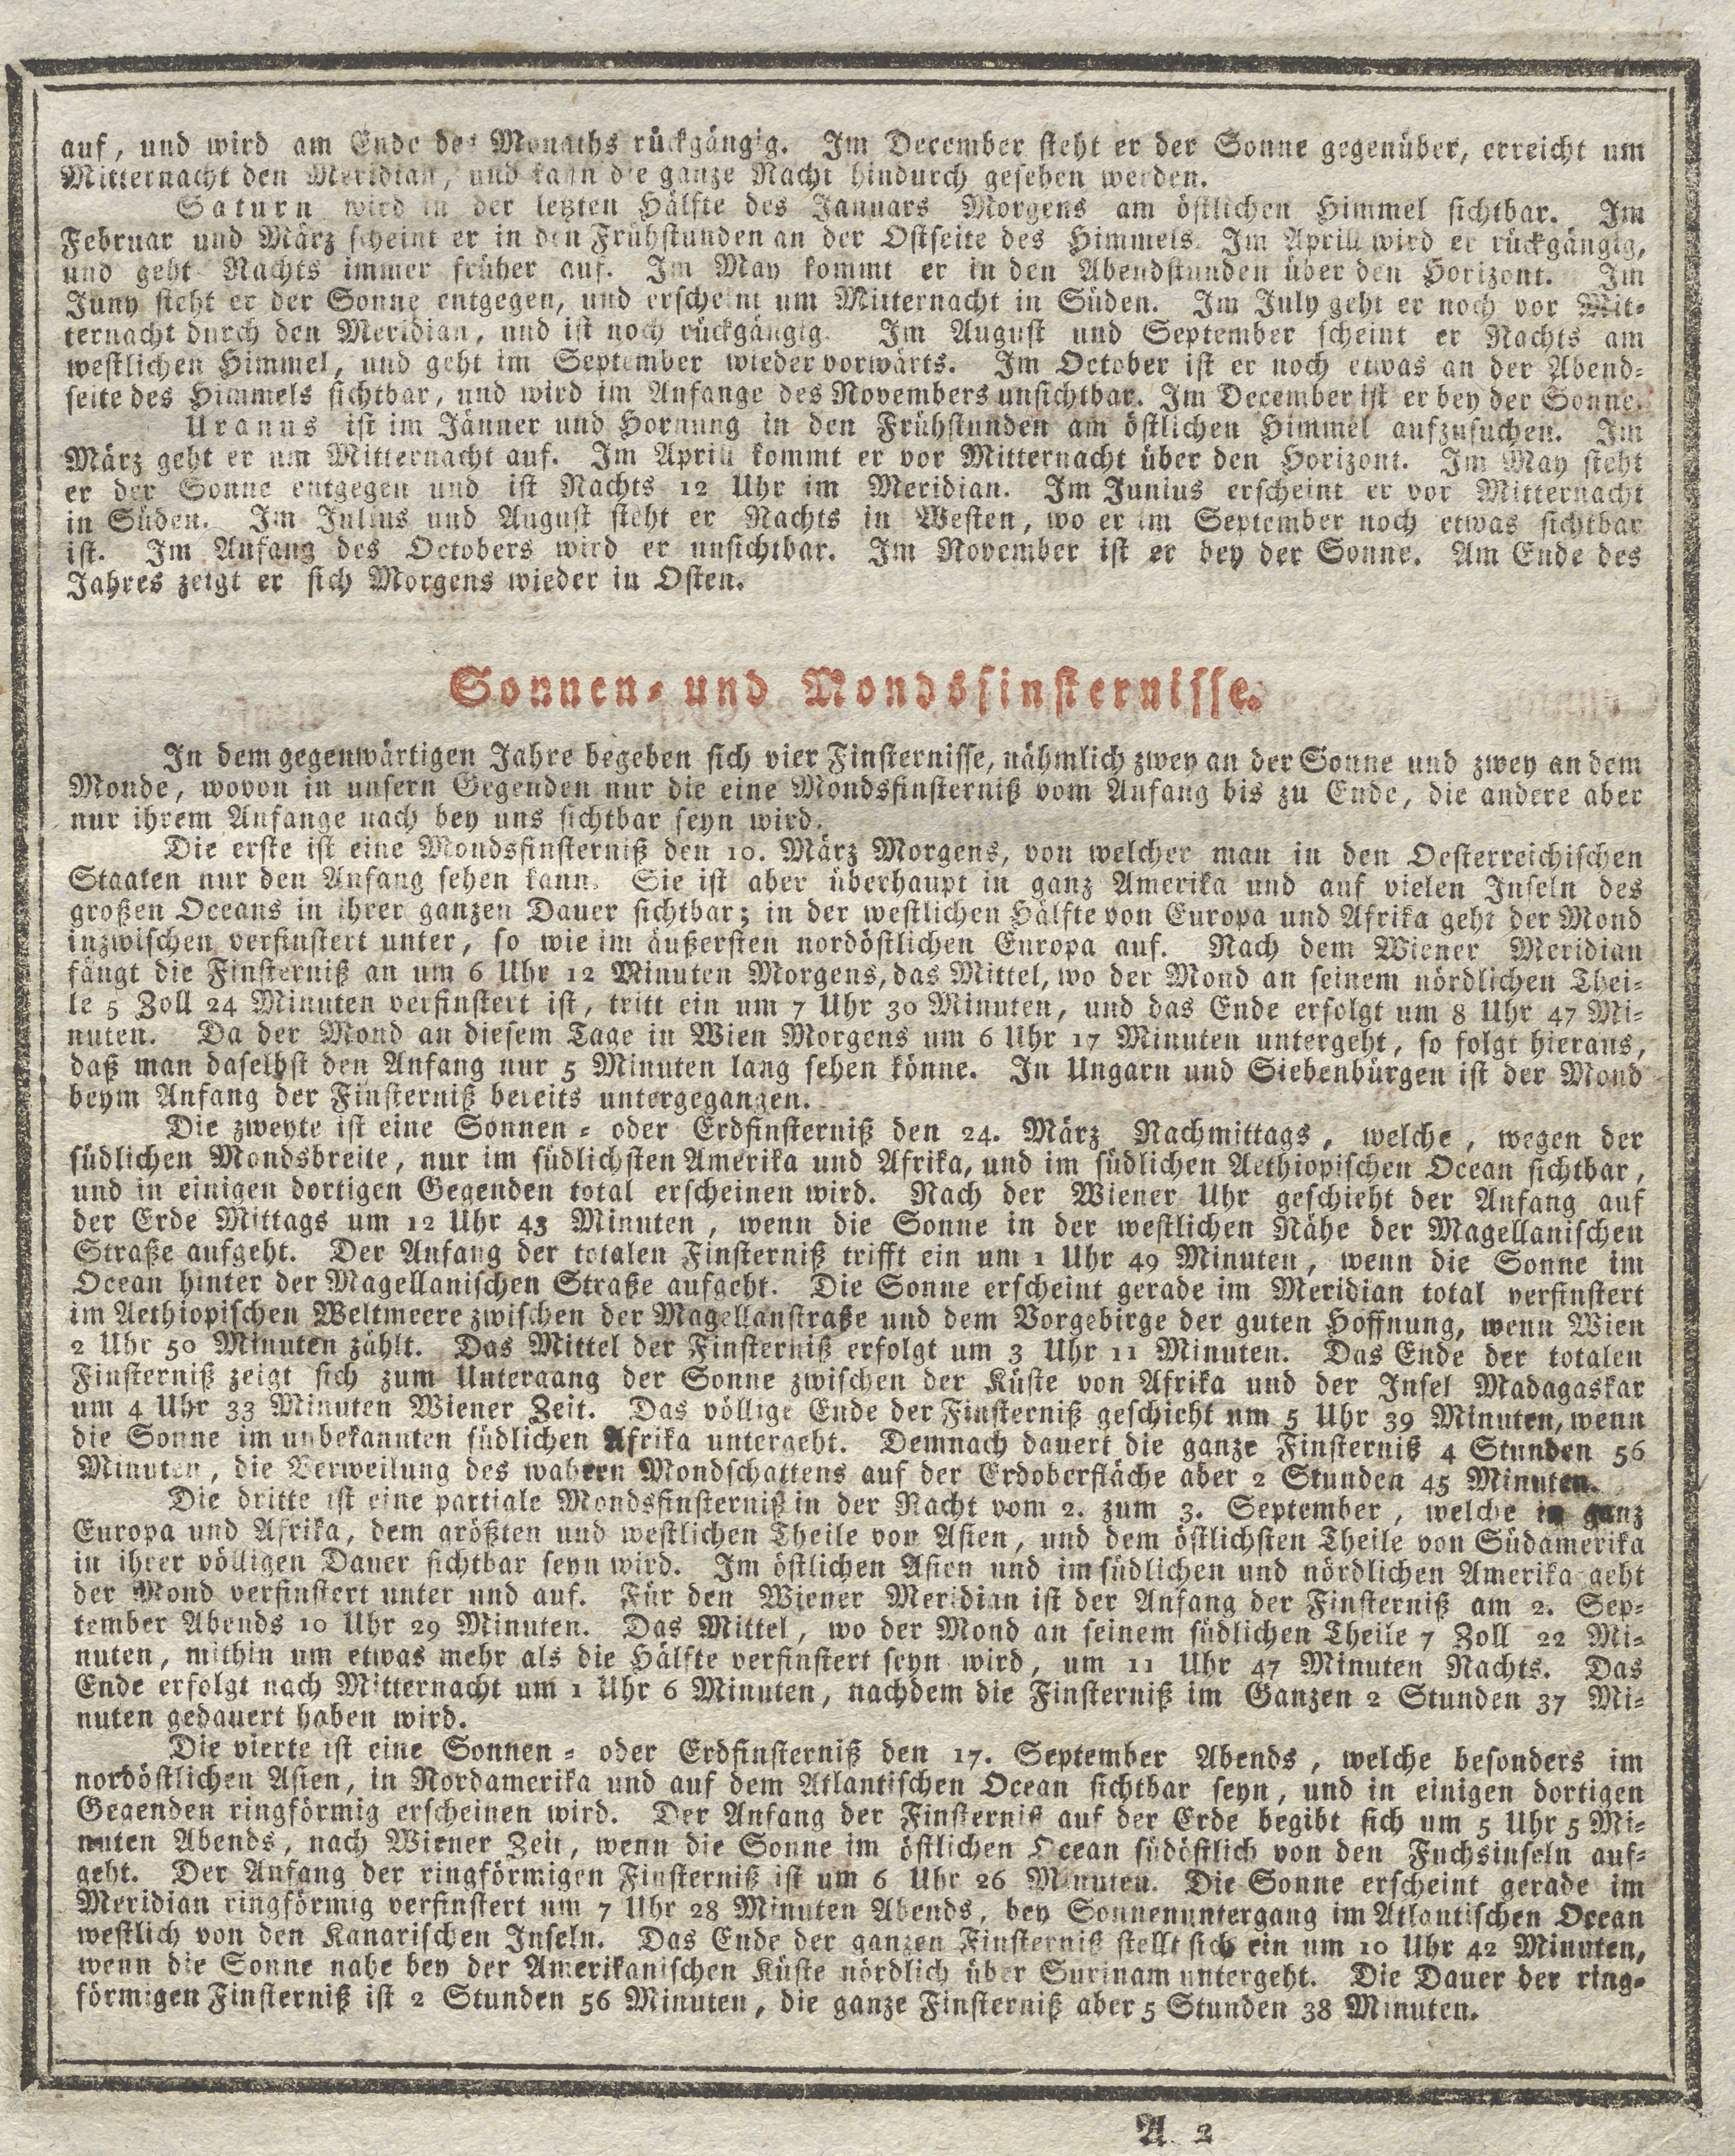 auf, und wird am Ende des Monaths rückgängig. Im December steht er der Sonne gegenüber, erreicht um
Mitternacht den Meridian, und kann die ganze Nacht hindurch gesehen werden.
Saturn wird in der letzten Hälfte des Januars Morgens am östlichen Himmel sichtbar. Im
Februar und März scheint er in den Frühstunden an der Ostseite des Himmels. Im Aprill wird er rückgängig,
und geht Nachts immer früher auf. Im May kommt er in den Abendstunden über den Horizont. Im
Juny steht er der Sonne entgegen, und erscheint um Mitternacht in Süden. Im July geht er noch vor Mit-
ternacht durch den Meridian, und ist noch rückgängig. Im August und September scheint er Nachts am
westlichen Himmel, und geht im September wieder vorwärts. Im October ist er noch etwas an der Abend-
seite des Himmels sichtbar, und wird im Anfange des Novembers unsichtbar. Im December ist er bey der Sonne.
Uranus ist im Jänner und Hornung in den Frühstunden am östlichen Himmel aufzusuchen. Im
März geht er um Mitternacht auf. Im Aprill kommt er vor Mitternacht über den Horizont. Im May steht
er der Sonne entgegen und ist Nachts 12 Uhr im Meridian. Im Junius erscheint er vor Mitternacht
in Süden. Im Julius und August steht er Nachts in Westen, wo er im September noch etwas sichtbar
ist. Im Anfang des Octobers wird er unsichtbar. Im November ist er bey der Sonne. Am Ende des
Jahres zeigt er sich Morgens wieder in Osten.
Sonnen- und Mondsfinsternisse.
In dem gegenwärtigen Jahre begeben sich vier Finsternisse, nähmlich zwey an der Sonne und zwey an dem
Monde, wovon in unsern Gegenden nur die eine Mondsfinsterniß vom Anfang bis zu Ende, die andere aber
nur ihrem Anfange nach bey uns sichtbar seyn wird.
Die erste ist eine Mondsfinsterniß den 10. März Morgens, von welcher man in den Oesterreichischen
Staaten nur den Anfang sehen kann. Sie ist aber überhaupt in ganz Amerika und auf vielen Inseln des
großen Oceans in ihrer ganzen Dauer sichtbar; in der westlichen Hälfte von Europa und Afrika geht der Mond
inzwischen verfinstert unter, so wie im äußersten nordöstlichen Europa auf. Nach dem Wiener Meridian
fängt die Finsterniß an um 6 Uhr 12 Minuten Morgens, das Mittel, wo der Mond an seinem nördlichen Thei-
le 5 Zoll 24 Minuten verfinstert ist, tritt ein um 7 Uhr 30 Minuten, und das Ende erfolgt um 8 Uhr 47 Mi-
nuten. Da der Mond an diesem Tage in Wien Morgens um 6 Uhr 17 Minuten untergeht, so folgt hieraus,
daß man daselbst den Anfang nur 5 Minuten lang sehen könne. In Ungarn und Siebenbürgen ist der Mond
beym Anfang der Finsterniß bereits untergegangen.
Die zweyte ist eine Sonnen- oder Erdfinsterniß den 24. März Nachmittags, welche, wegen der
südlichen Mondsbreite, nur im südlichsten Amerika und Afrika, und im südlichen Aethiopischen Ocean sichtbar,
und in einigen dortigen Gegenden total erscheinen wird. Nach der Wiener Uhr geschieht der Anfang auf
der Erde Mittags um 12 Uhr 43 Minuten, wenn die Sonne in der westlichen Nähe der Magellanischen
Straße aufgeht. Der Anfang der totalen Finsterniß trifft ein um 1 Uhr 49 Minuten, wenn die Sonne im
Ocean hinter der Magellanischen Straße aufgeht. Die Sonne erscheint gerade im Meridian total verfinstert
im Aethiopischen Weltmeere zwischen der Magellanstraße und dem Vorgebirge der guten Hoffnung, wenn Wien
2 Uhr 50 Minuten zählt. Das Mittel der Finsterniß erfolgt um 3 Uhr 11 Minuten. Das Ende der totalen
Finsterniß zeigt sich zum Untergang der Sonne zwischen der Küste von Afrika und der Insel Madagaskar
um 4 Uhr 33 Minuten Wiener Zeit. Das völlige Ende der Finsterniß geschieht um 5 Uhr 39 Minuten, wenn
die Sonne im unbekannten südlichen Afrika untergeht. Demnach dauert die ganze Finsterniß 4 Stunden 56
Minuten, die Verweilung des wahren Mondschattens auf der Erdoberfläche aber 2 Stunden 45 Minuten.
Die dritte ist eine partiale Mondsfinsterniß in der Nacht vom 2. zum 3. September, welche in ganz
Europa und Afrika, dem größten und westlichen Theile von Asien, und dem östlichsten Theile von Südamerika
in ihrer völligen Dauer sichtbar seyn wird. Im östlichen Asien und im südlichen und nördlichen Amerika geht
der Mond verfinstert unter und auf. Für den Wiener Meridian ist der Anfang der Finsterniß am 2. Sep-
tember Abends 10 Uhr 29 Minuten. Das Mittel, wo der Mond an seinem südlichen Theile 7 Zoll 22 Mi-
nuten, mithin um etwas mehr als die Hälfte verfinstert seyn wird, um 11 Uhr 47 Minuten Nachts. Das
Ende erfolgt nach Mitternacht um 1 Uhr 6 Minuten, nachdem die Finsterniß im Ganzen 2 Stunden 37 Mi-
nuten gedauert haben wird.
Die vierte ist eine Sonnen- oder Erdfinsterniß den 17. September Abends, welche besonders im
nordöstlichen Asien, in Nordamerika und auf dem Atlantischen Ocean sichtbar seyn, und in einigen dortigen
Gegenden ringförmig erscheinen wird. Der Anfang der Finsterniß auf der Erde begibt sich um 5 Uhr 5 Mi-
nuten Abends, nach Wiener Zeit, wenn die Sonne im östlichen Ocean südöstlich von den Fuchsinseln auf-
geht. Der Anfang der ringförmigen Finsterniß ist um 6 Uhr 26 Minuten. Die Sonne erscheint gerade im
Meridian ringförmig verfinstert um 7 Uhr 28 Minuten Abends, bey Sonnenuntergang im Atlantischen Ocean
westlich von den Kanarischen Inseln. Das Ende der ganzen Finsterniß stellt sich ein um 10 Uhr 42 Minuten,
wenn die Sonne nahe bey der Amerikanischen Küste nördlich über Surinam untergeht. Die Dauer der ring-
förmigen Finsterniß ist 2 Stunden 56 Minuten, die ganze Finsterniß aber 5 Stunden 38 Minuten.
A 2